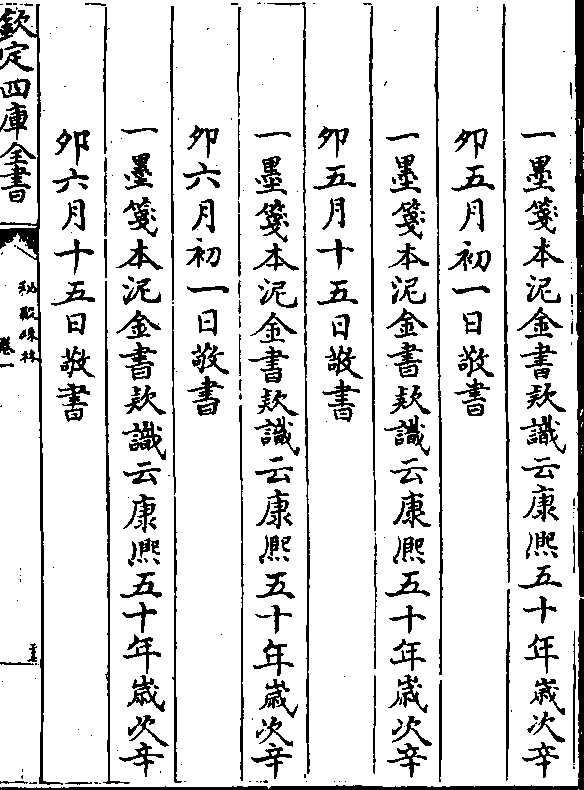 一墨箋本泥金書款識云康熙五十年歲次辛
卯五月初一日敬書
一墨箋本泥金書款識云康熙五十年歲次辛
卯五月十五日敬書
一墨箋本泥金書款識云康熙五十年歲次辛
卯六月初一日敬書
一墨箋本泥金書款識云康熙五十年歲次辛
卯六月十五日敬書
欽定四庫全書
秘殿珠林
卷一